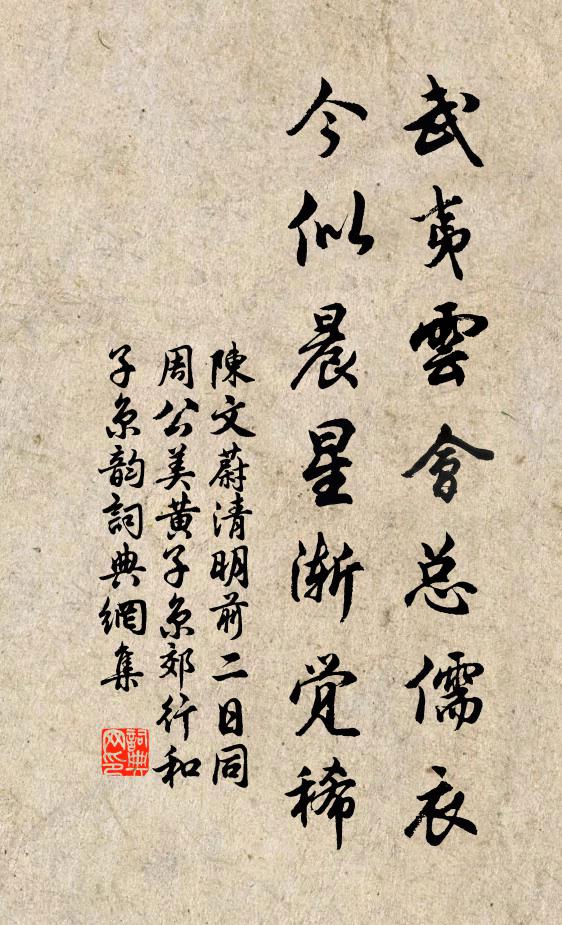 武夷雲會总儒衣
今似晨星渐觉稀
陳文蔚清明前二日同
周公美黄子京郊行和
子京韵詞典網集
詞典网印